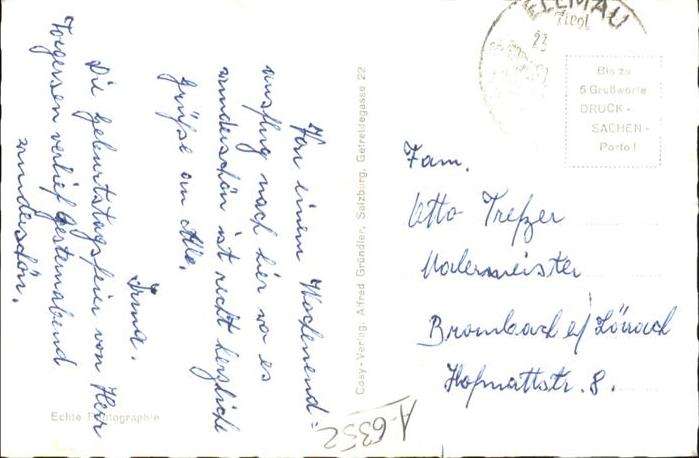 Von einem Wochenend-
ausflug nach hier wo es
wunderschön ist recht herzliche
Grüße an Alle,
Irma.
Die Geburtstagsfeier von Herr
verlief gesternabend
wunderschön.
Echte Photographie
Cosy-Verlag, Alfred Gründler, Salzburg, Getreidegasse 22
ELLMAU
Tirol
23
Bis zu
5 Grußworte
DRUCK-
SACHEN-
Porto!
Fam.
Otto Trefzer
Malermeister
Brombach b/ Lörrach
Hofmattstr. 8.
A-6352